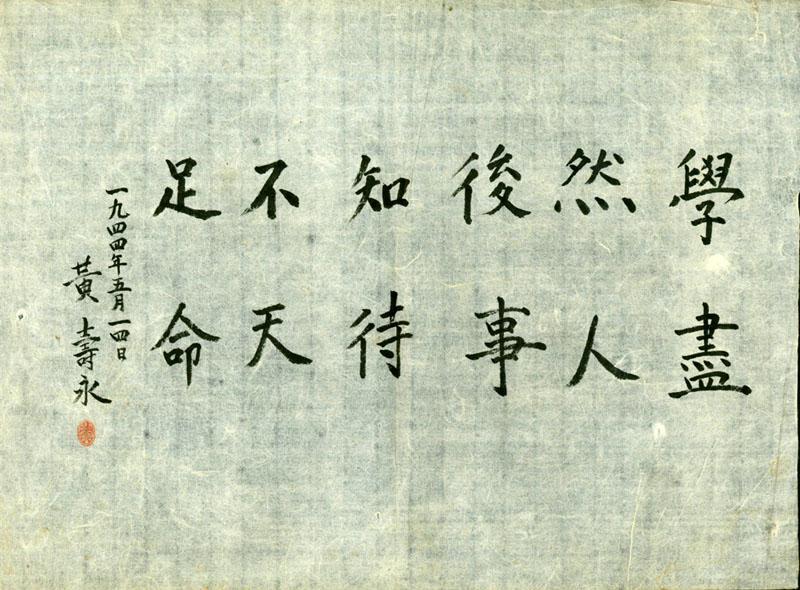 學然後知不足
盡人事待天命
一九四四年五月一四日
黃壽永